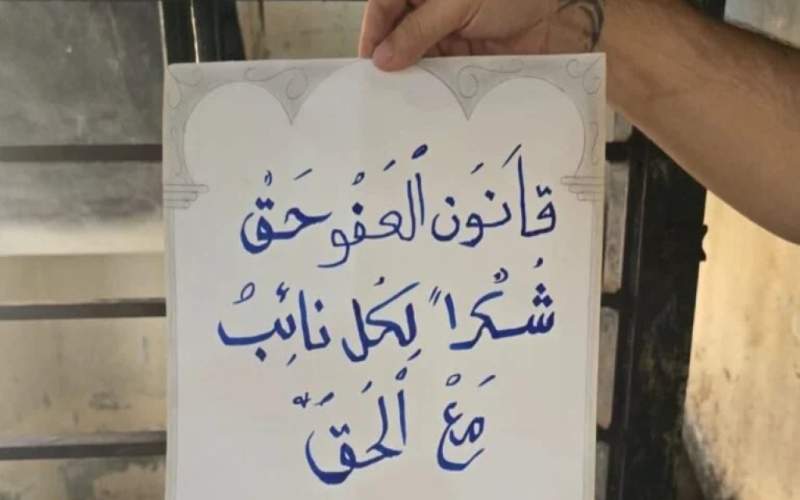 قَانَوَن ٱلعَفْو حَقْ
شُكْراً لِكُل نائِبْ
مَعْ ٱلحَقّ